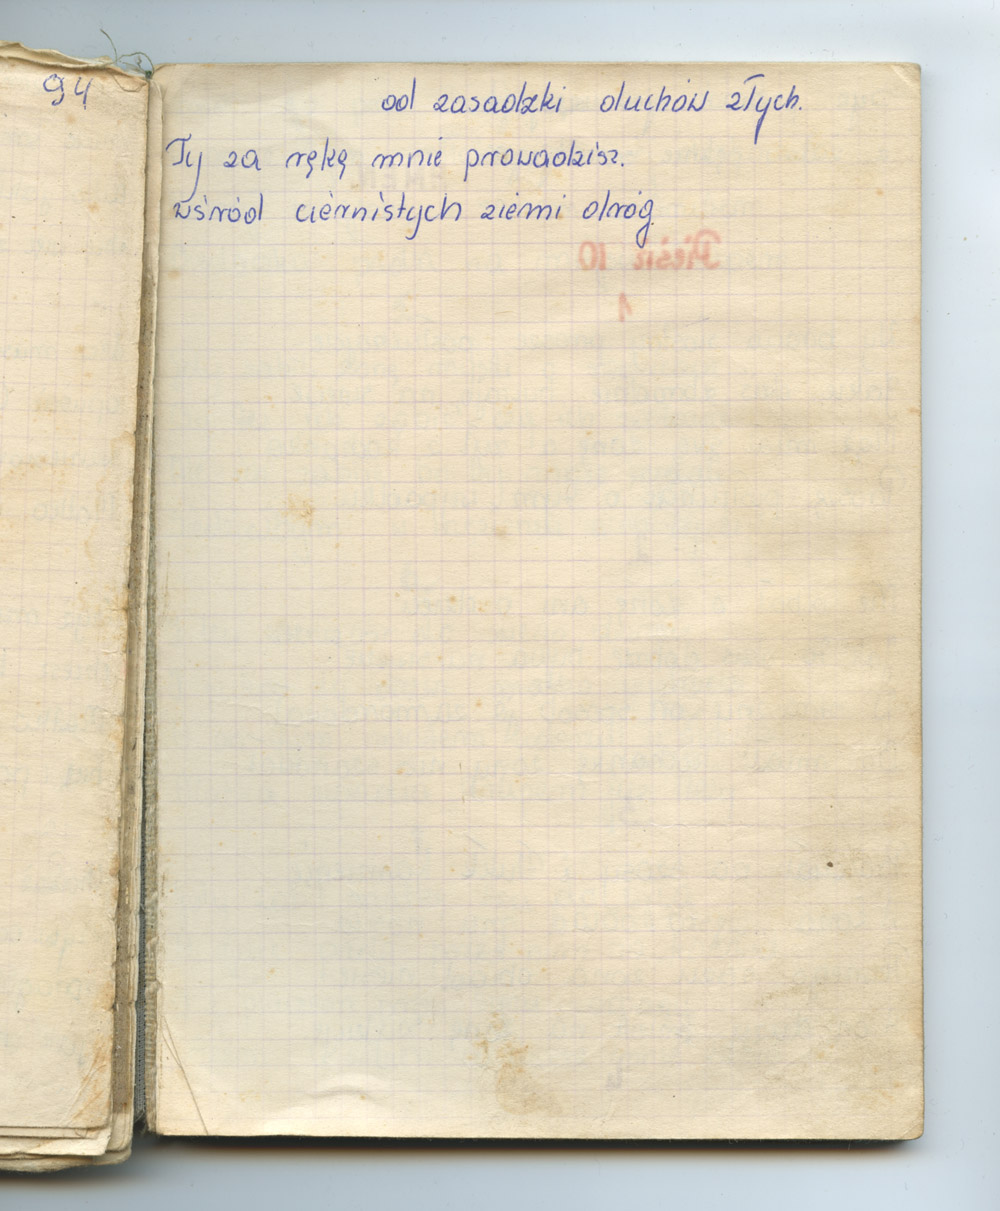 94
od zasadzki duchów złych.
Ty za rękę mnie prowadzisz.
wśród ciernistych ziemi dróg
Pieśń 10
1